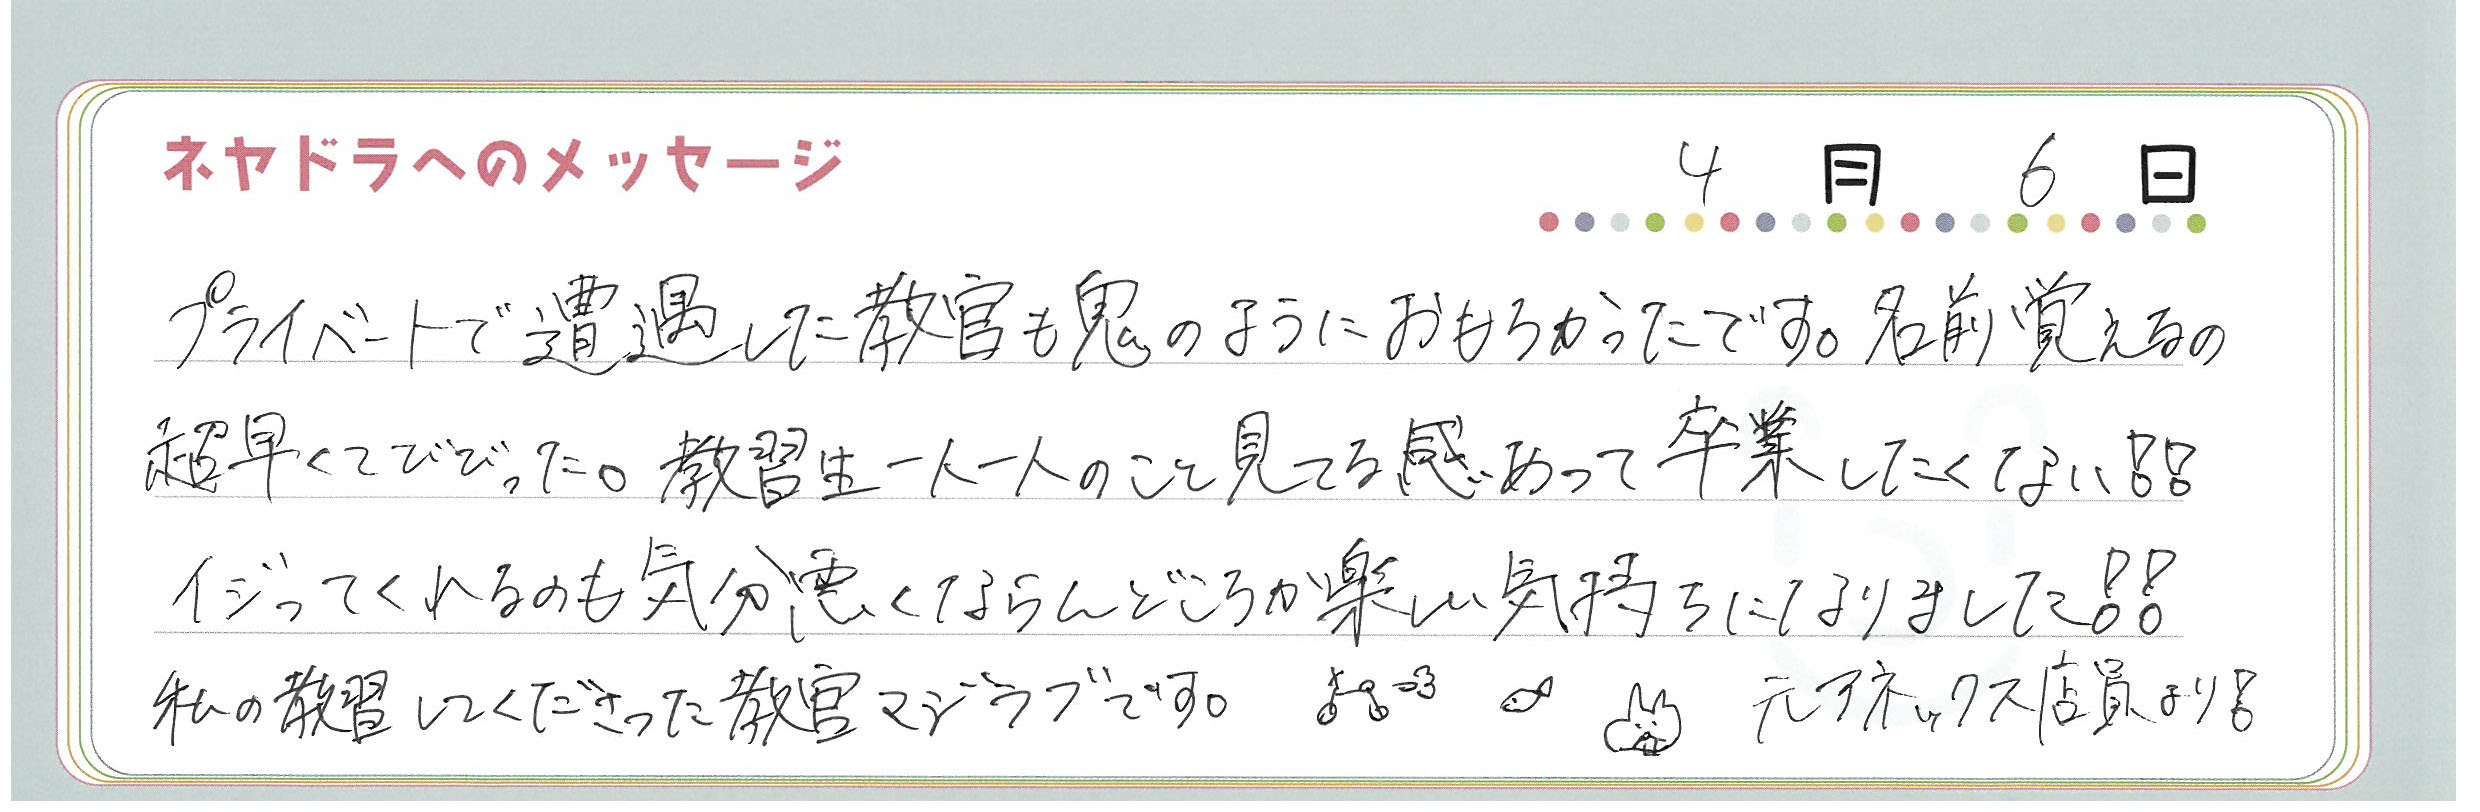 ネヤドラへのメッセージ
4月6日
プライベートで遭遇した教官も鬼のようにおもろかったです。名前覚えるの
超早くてびびった。教習生一人一人のこと見てる感じあって卒業したくない!!
イジってくれるのも気分悪くならんどころか楽しい気持ちになりました!!
私の教習してくださった教官マジラブです。 元アネックス店員より!